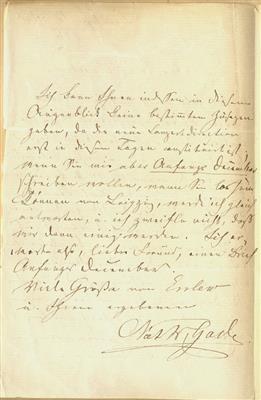 Ich kann Ihnen indessen in diesem
Augenblick keine bestimmten Zusagen
geben, da die neue Concertdirection
erst in diesen Tagen constituirt ist;
wenn Sie mir aber Anfangs December
schreiben wollen, wann Sie
können von Leipzig, werde ich gleich
antworten, u. ich zweifle nicht, daß
wir dann einig werden. Ich er,
warte also, lieber Freund, einen Brief
Anfangs December.
Viele Grüße von
u. Ihrem ergebenen
Niels W. Gade.